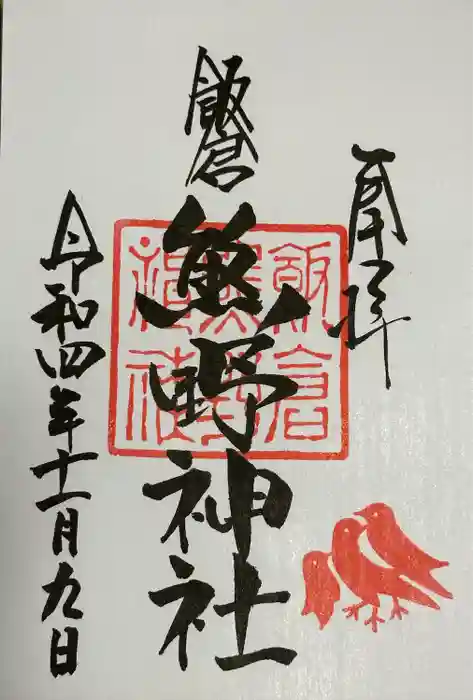 奉拝
飯倉
熊野神社
飯倉熊野神社
令和四年十一月九日